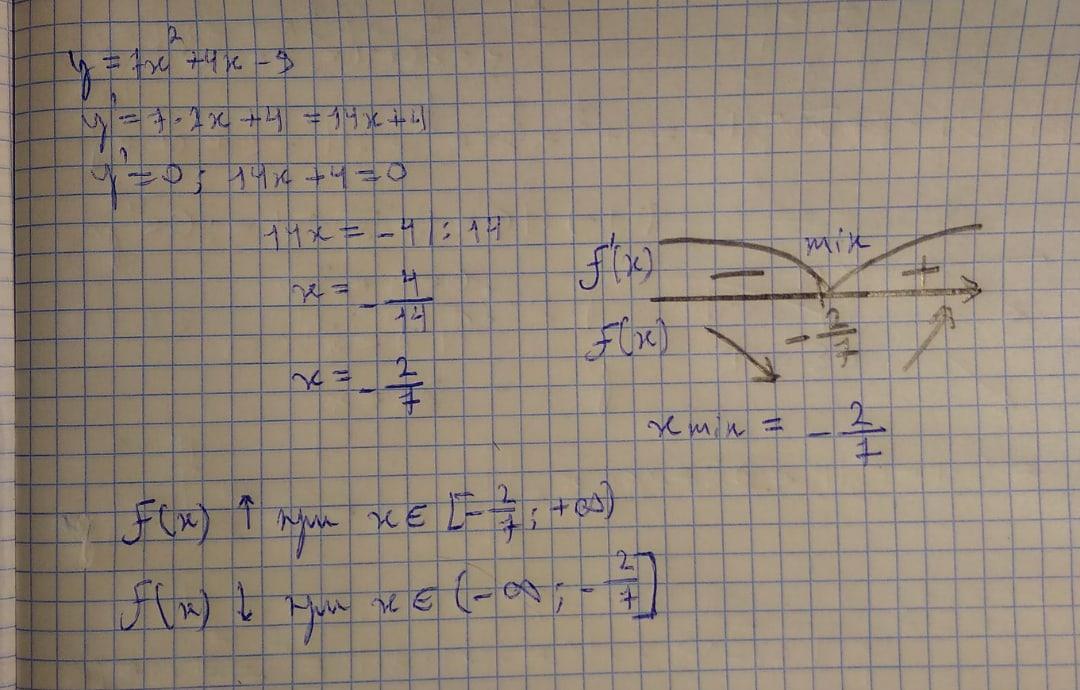 y = 7x² + 4x - 9
y' = 7·2x + 4 = 14x + 4
y' = 0; 14x + 4 = 0
14x = -4 | : 14
x = -4/14
x = -2/7
f'(x) − min +
f(x) -2/7
x min = -2/7
f(x) ↑ при x ∈ [-2/7; +∞)
f(x) ↓ при x ∈ (-∞; -2/7]